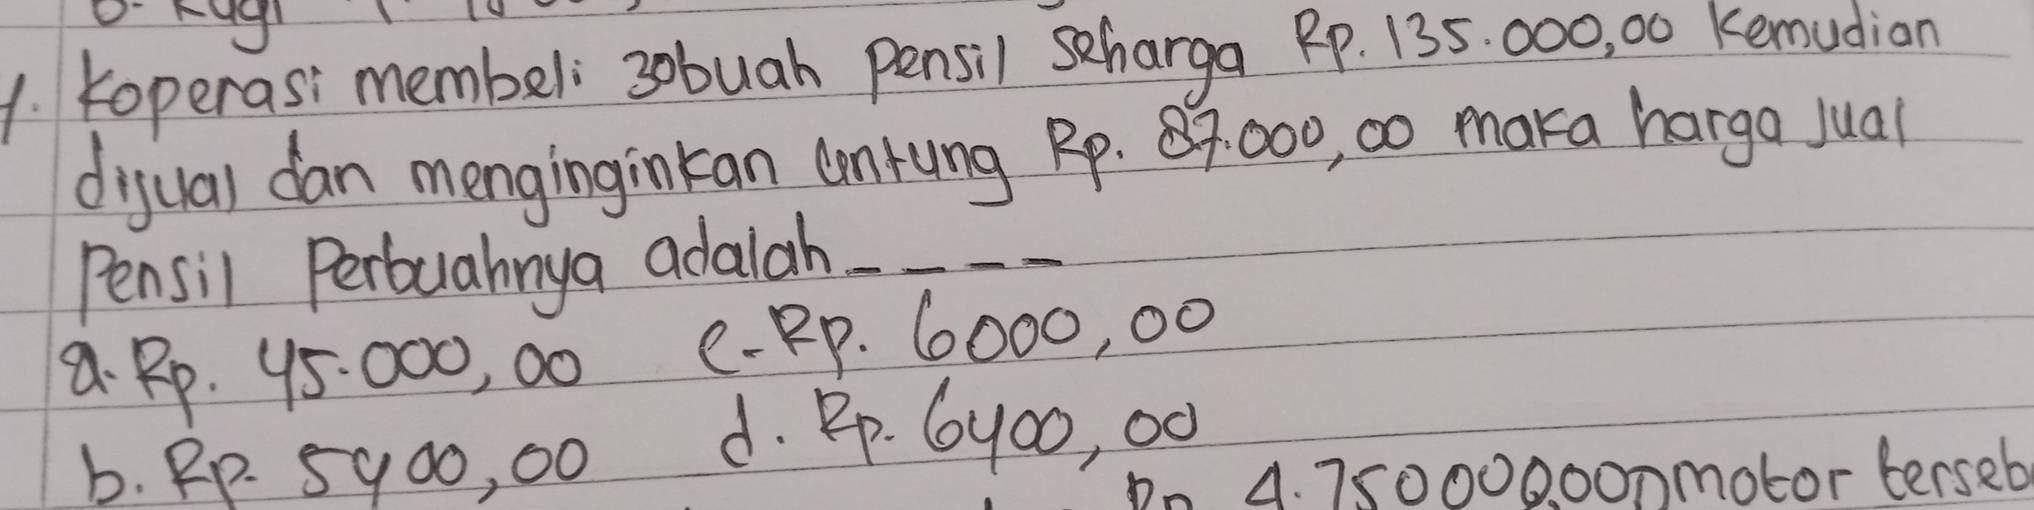 4. Koperasi membeli 30buah Pensil seharga Rp. 135.000,00 Kemudian
dijual dan menginginkan untung Rp. 87.000,00 maka harga Jual
Pensil Perbuahnya adalah ----
a. Rp. 45.000,00 c. Rp. 6000,00
b. Rp. 5400,00 d. Rp. 6400,00
Rp 4.750000,00 motor terseb